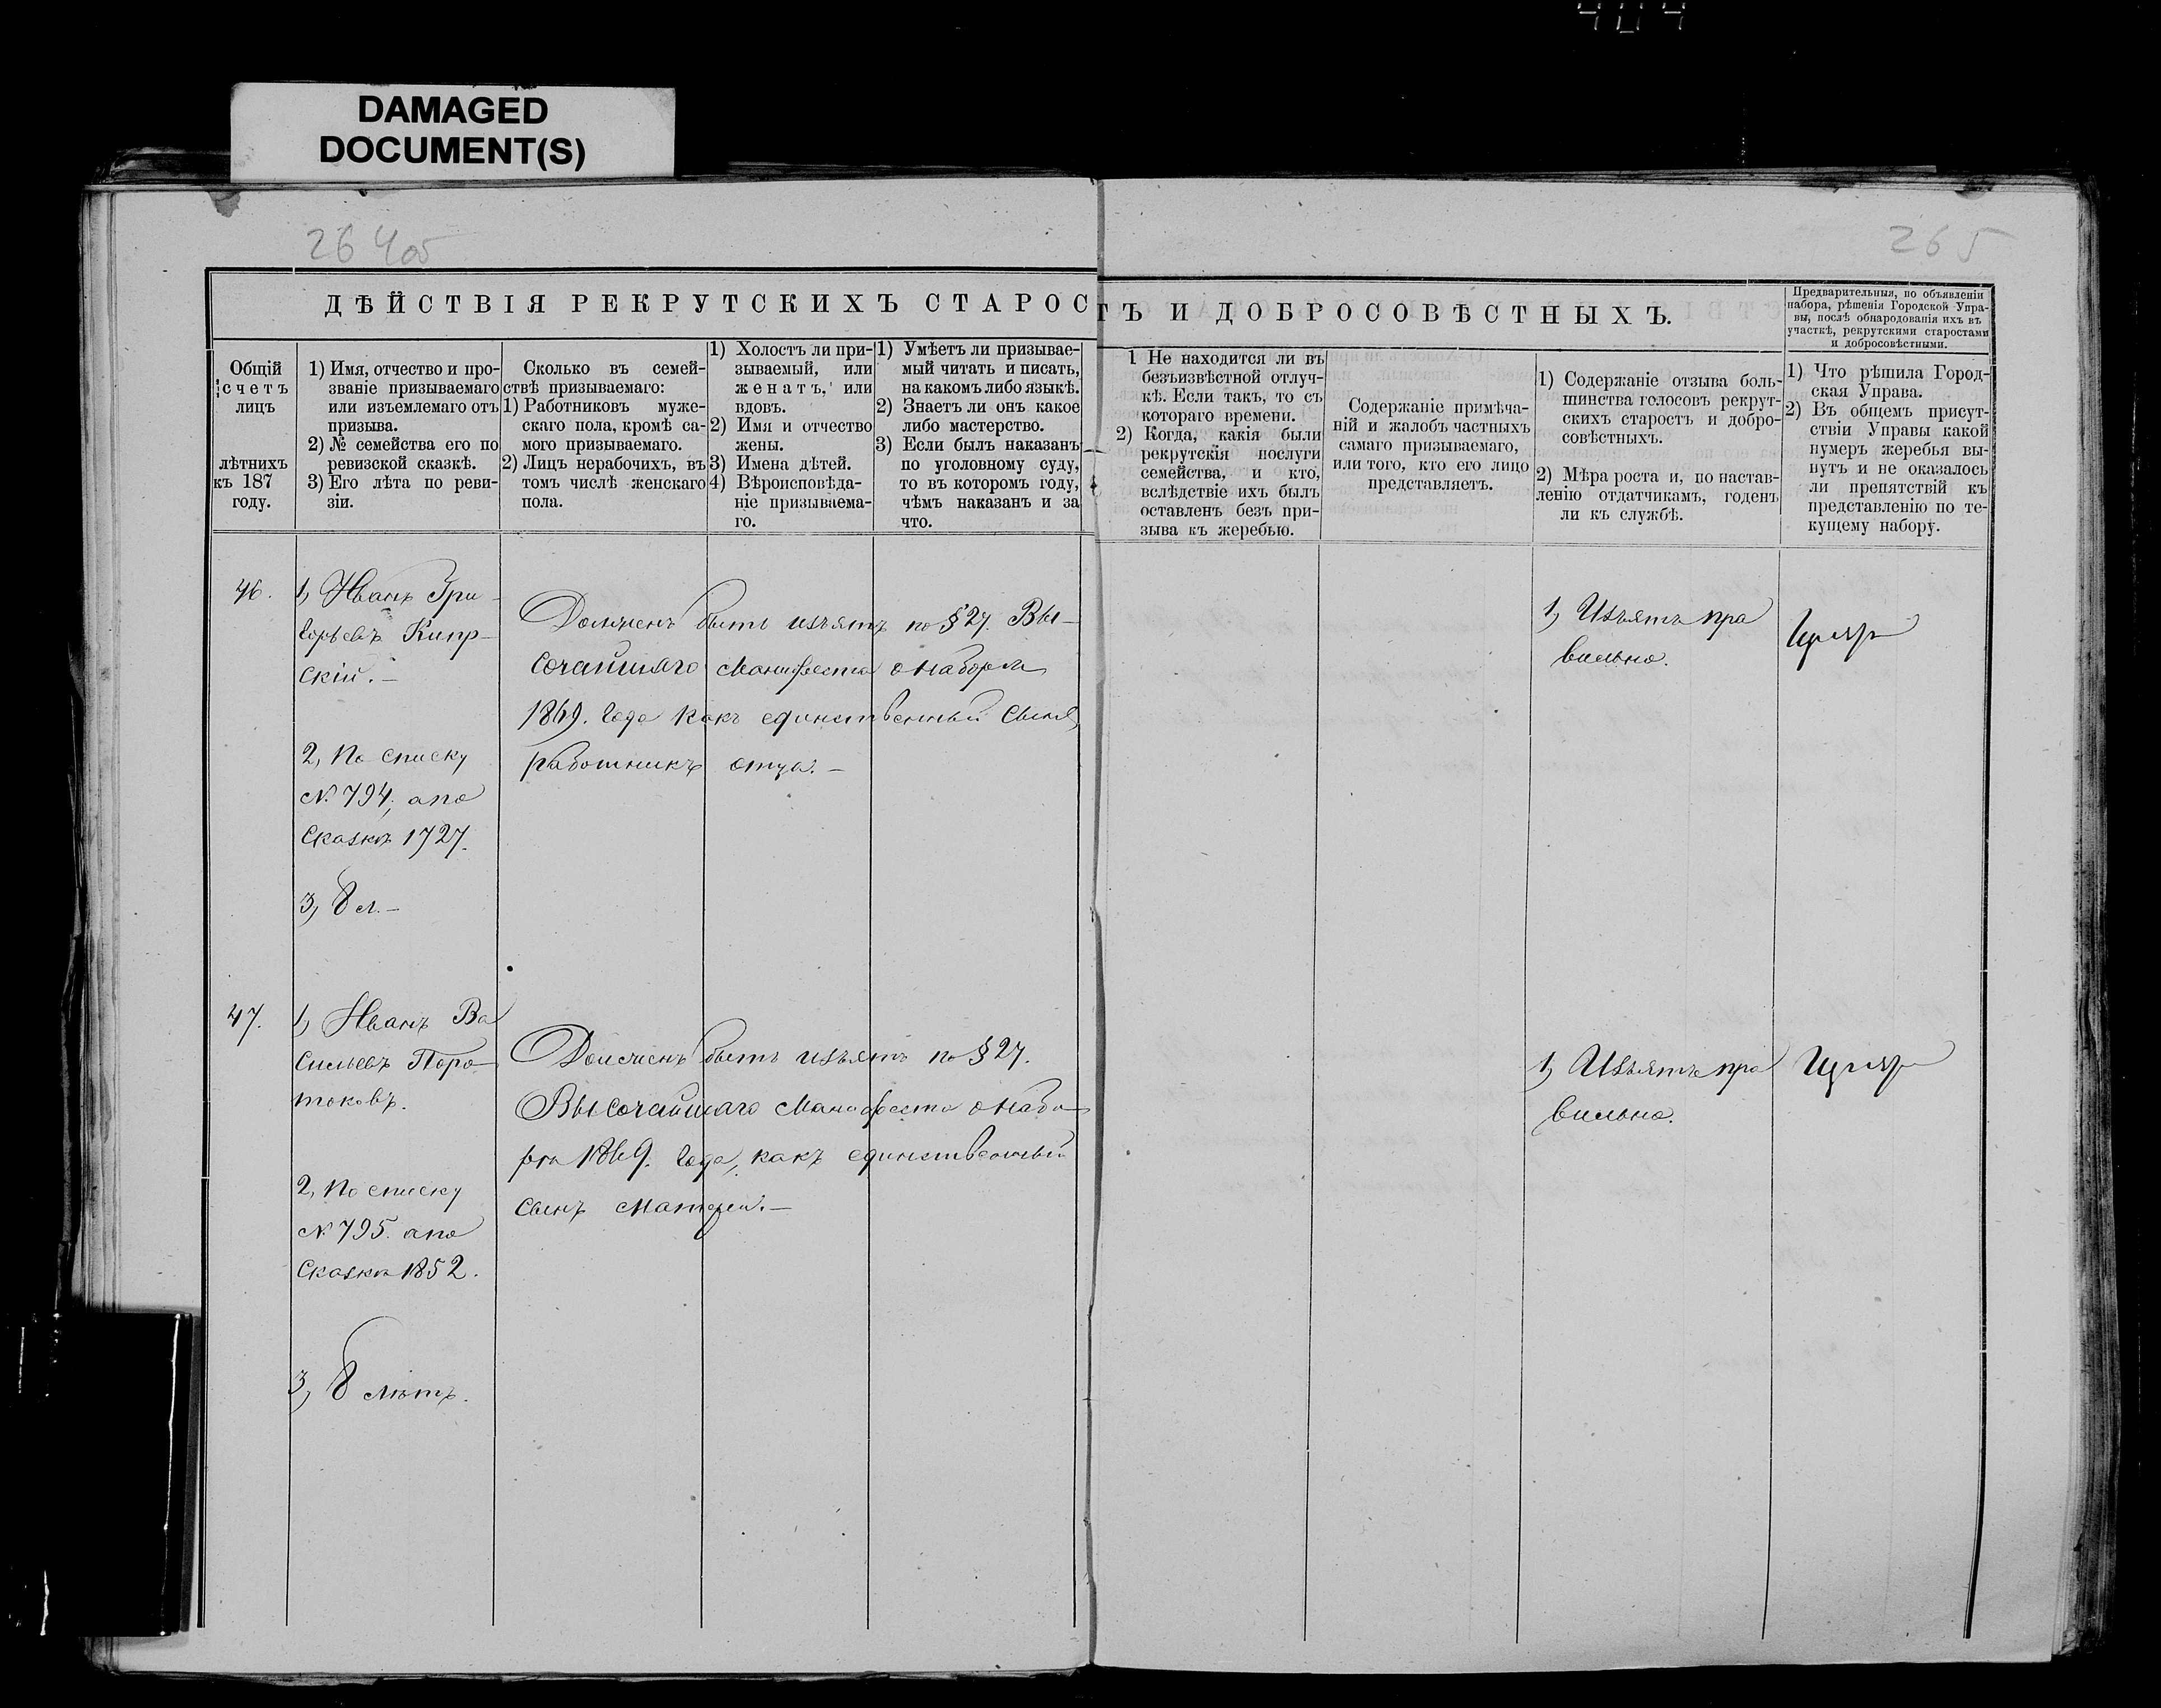 404
DAMAGED
DOCUMENT(S)
264об
265
ДѢЙСТВІЯ РЕКРУТСКИХЪ СТАРОСТЪ И ДОБРОСОВѢСТНЫХЪ.
Предварительныя, по объявленіи
набора, рѣшенія Городской Упра-
вы, послѣ обнародованія ихъ въ
участкѣ, рекрутскими старостами
и добросовѣстными.
Общій
счетъ
лицъ
лѣтнихъ
къ 187
году.
1) Имя, отчество и про-
званіе призываемаго
или изъемлемаго отъ
призыва.
2) № семейства его по
ревизской сказкѣ.
3) Его лѣта по реви-
зіи.
Сколько въ семей-
ствѣ призываемаго:
1) Работниковъ муже-
скаго пола, кромѣ са-
мого призываемаго.
2) Лицъ нерабочихъ, въ
томъ числѣ женскаго
пола.
1) Холостъ ли при-
зываемый, или
женатъ, или
вдовъ.
2) Имя и отчество
жены.
3) Имена дѣтей.
4) Вѣроисповѣда-
ніе призываема-
го.
1) Умѣетъ ли призывае-
мый читать и писать,
на какомъ либо языкѣ.
2) Знаетъ ли онъ какое
либо мастерство.
3) Если былъ наказанъ
по уголовному суду,
то въ которомъ году,
чѣмъ наказанъ и за
что.
1 Не находится ли въ
безъизвѣстной отлуч-
кѣ. Если такъ, то съ
котораго времени.
2) Когда, какія были
рекрутскія послуги
семейства, и кто,
вслѣдствіе ихъ былъ
оставленъ безъ при-
зыва къ жеребью.
Содержаніе примѣча-
ній и жалобъ частныхъ
самаго призываемаго,
или того, кто его лицо
представляетъ.
1) Содержаніе отзыва боль-
шинства голосовъ рекрут-
скихъ старостъ и добро-
совѣстныхъ.
2) Мѣра роста и, по настав-
ленію отдатчикамъ, годенъ
ли къ службѣ.
1) Что рѣшила Город-
ская Управа.
2) Въ общемъ присут-
ствіи Управы какой
нумеръ жеребья вы-
нутъ и не оказалось
ли препятствій къ
представленію по те-
кущему набору.
46.
1, Иванъ Гри-
горьевъ Кипр-
скій. —
2, По списку
№ 794, а по
сказкѣ 1727.
3, 8 л. —
Долженъ быть изъятъ по § 27. Вы-
сочайшаго Манифеста о наборѣ
1869. года какъ единственный сынъ,
работникъ отца. —
1, Изъятъ пра
вильно.
47.
1, Иванъ Ва
сильевъ Поро-
токовъ.
2, По списку
№ 795. а по
сказкѣ 1852.
3, 8 лѣтъ.
Долженъ быть изъятъ по § 27.
Высочайшаго Манифеста о набо-
рѣ 1869. года, какъ единственный
сынъ матери. —
1, Изъятъ пра
вильно.